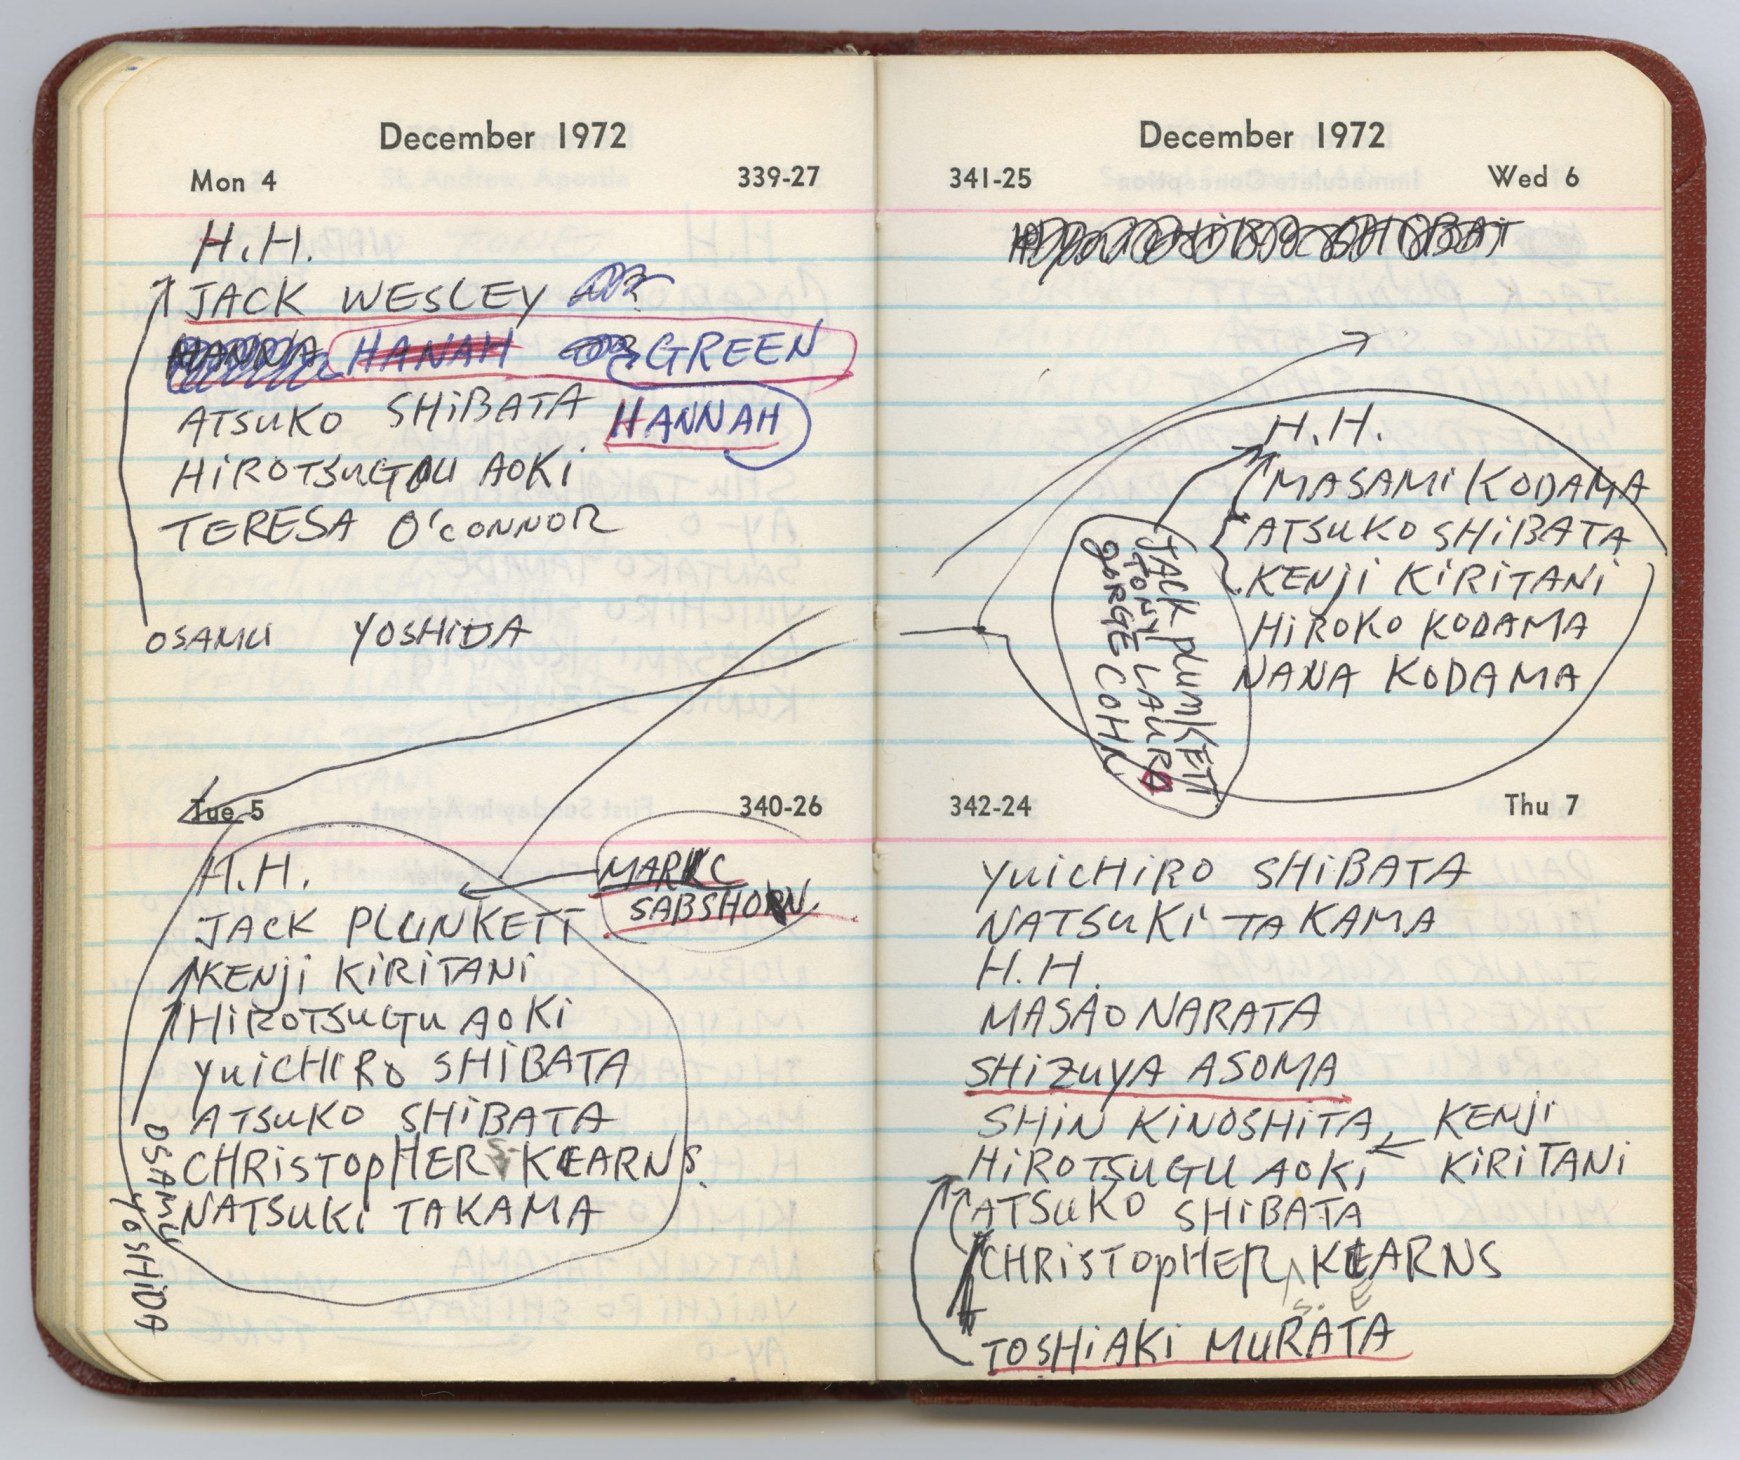 December 1972
Mon 4 339-27
H.H.
JACK WESLEY
HANNA HANAH GREEN
ATSUKO SHiBATA HANNAH
HiROTSUGU AOKi
TERESA O'CONNOR
OSAMU YOSHiDA
Tue 5 340-26
H.H. MARK
SABSHORN
JACK PLUNKETT
KENji KiRiTANi
HiROTSUGU AOKi
YUiCHIRO SHiBATA
ATSUKO SHiBATA
CHRiSTOPHER S. KEARNS.
NATSUKi TAKAMA
OSAMU YOSHiDA
December 1972
341-25 Wed 6
H.H.
MASAMi KODAMA
ATSUKO SHiBATA
KENji KiRiTANi
HiROKO KODAMA
NANA KODAMA
JACK PLUMKETT
TONY LAURO
GORGE COHN
342-24 Thu 7
YUiCHiRO SHiBATA
NATSUKi TAKAMA
H.H.
MASAO NARATA
SHiZUYA ASOMA
SHiN KiNOSHiTA KENji
HiROTSUGU AOKi KiRiTANi
ATSUKO SHiBATA
CHRiSTOPHER KEARNS
S. E
TOSHiAKi MURATA